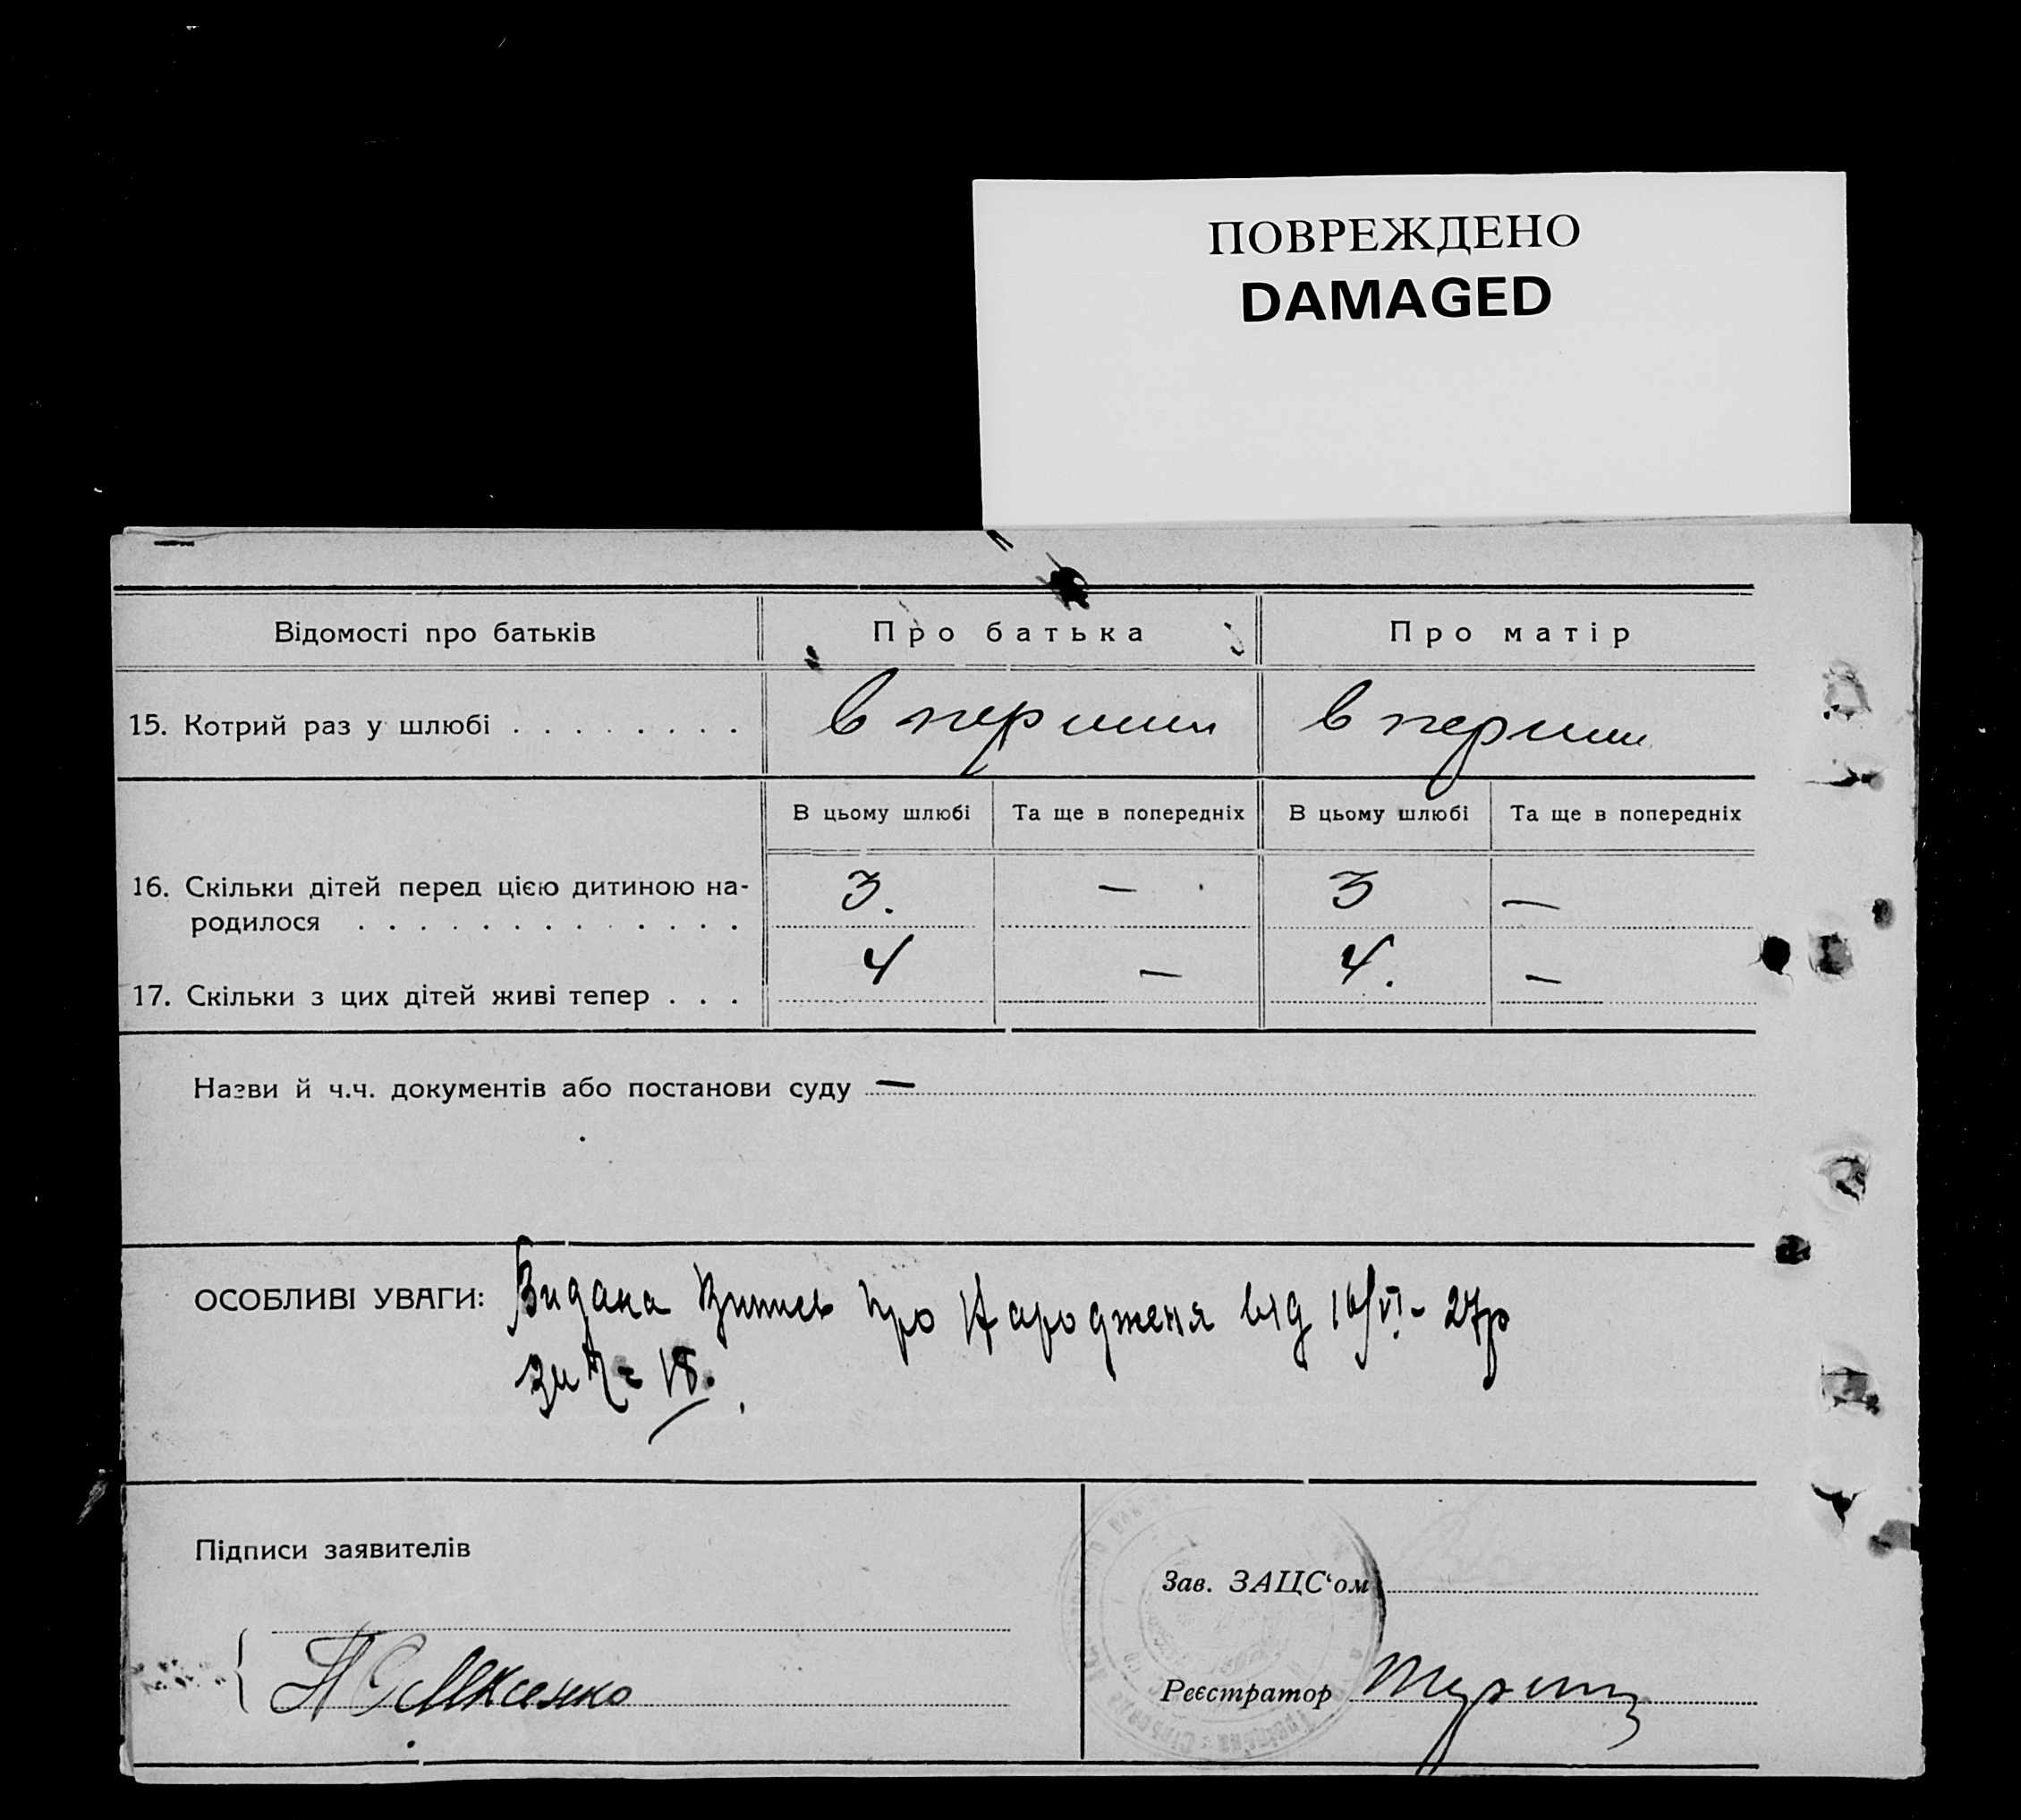 ПОВРЕЖДЕНО
DAMAGED
Відомості про батьків Про батька Про матір
15. Котрий раз у шлюбі . . . . . . . . в перший в перший
В цьому шлюбі Та ще в попередніх В цьому шлюбі Та ще в попередніх
16. Скільки дітей перед цією дитиною на- 3. — 3 —
родилося . . . . . . . . . . . . .
17. Скільки з цих дітей живі тепер . . . 4 — 4. —
Назви й ч.ч. документів або постанови суду —
ОСОБЛИВІ УВАГИ: Видана про Народженя від 16/VI - 27р
за № 18.
Підписи заявителів
Зав. ЗАЦС‘ом
Реєстратор